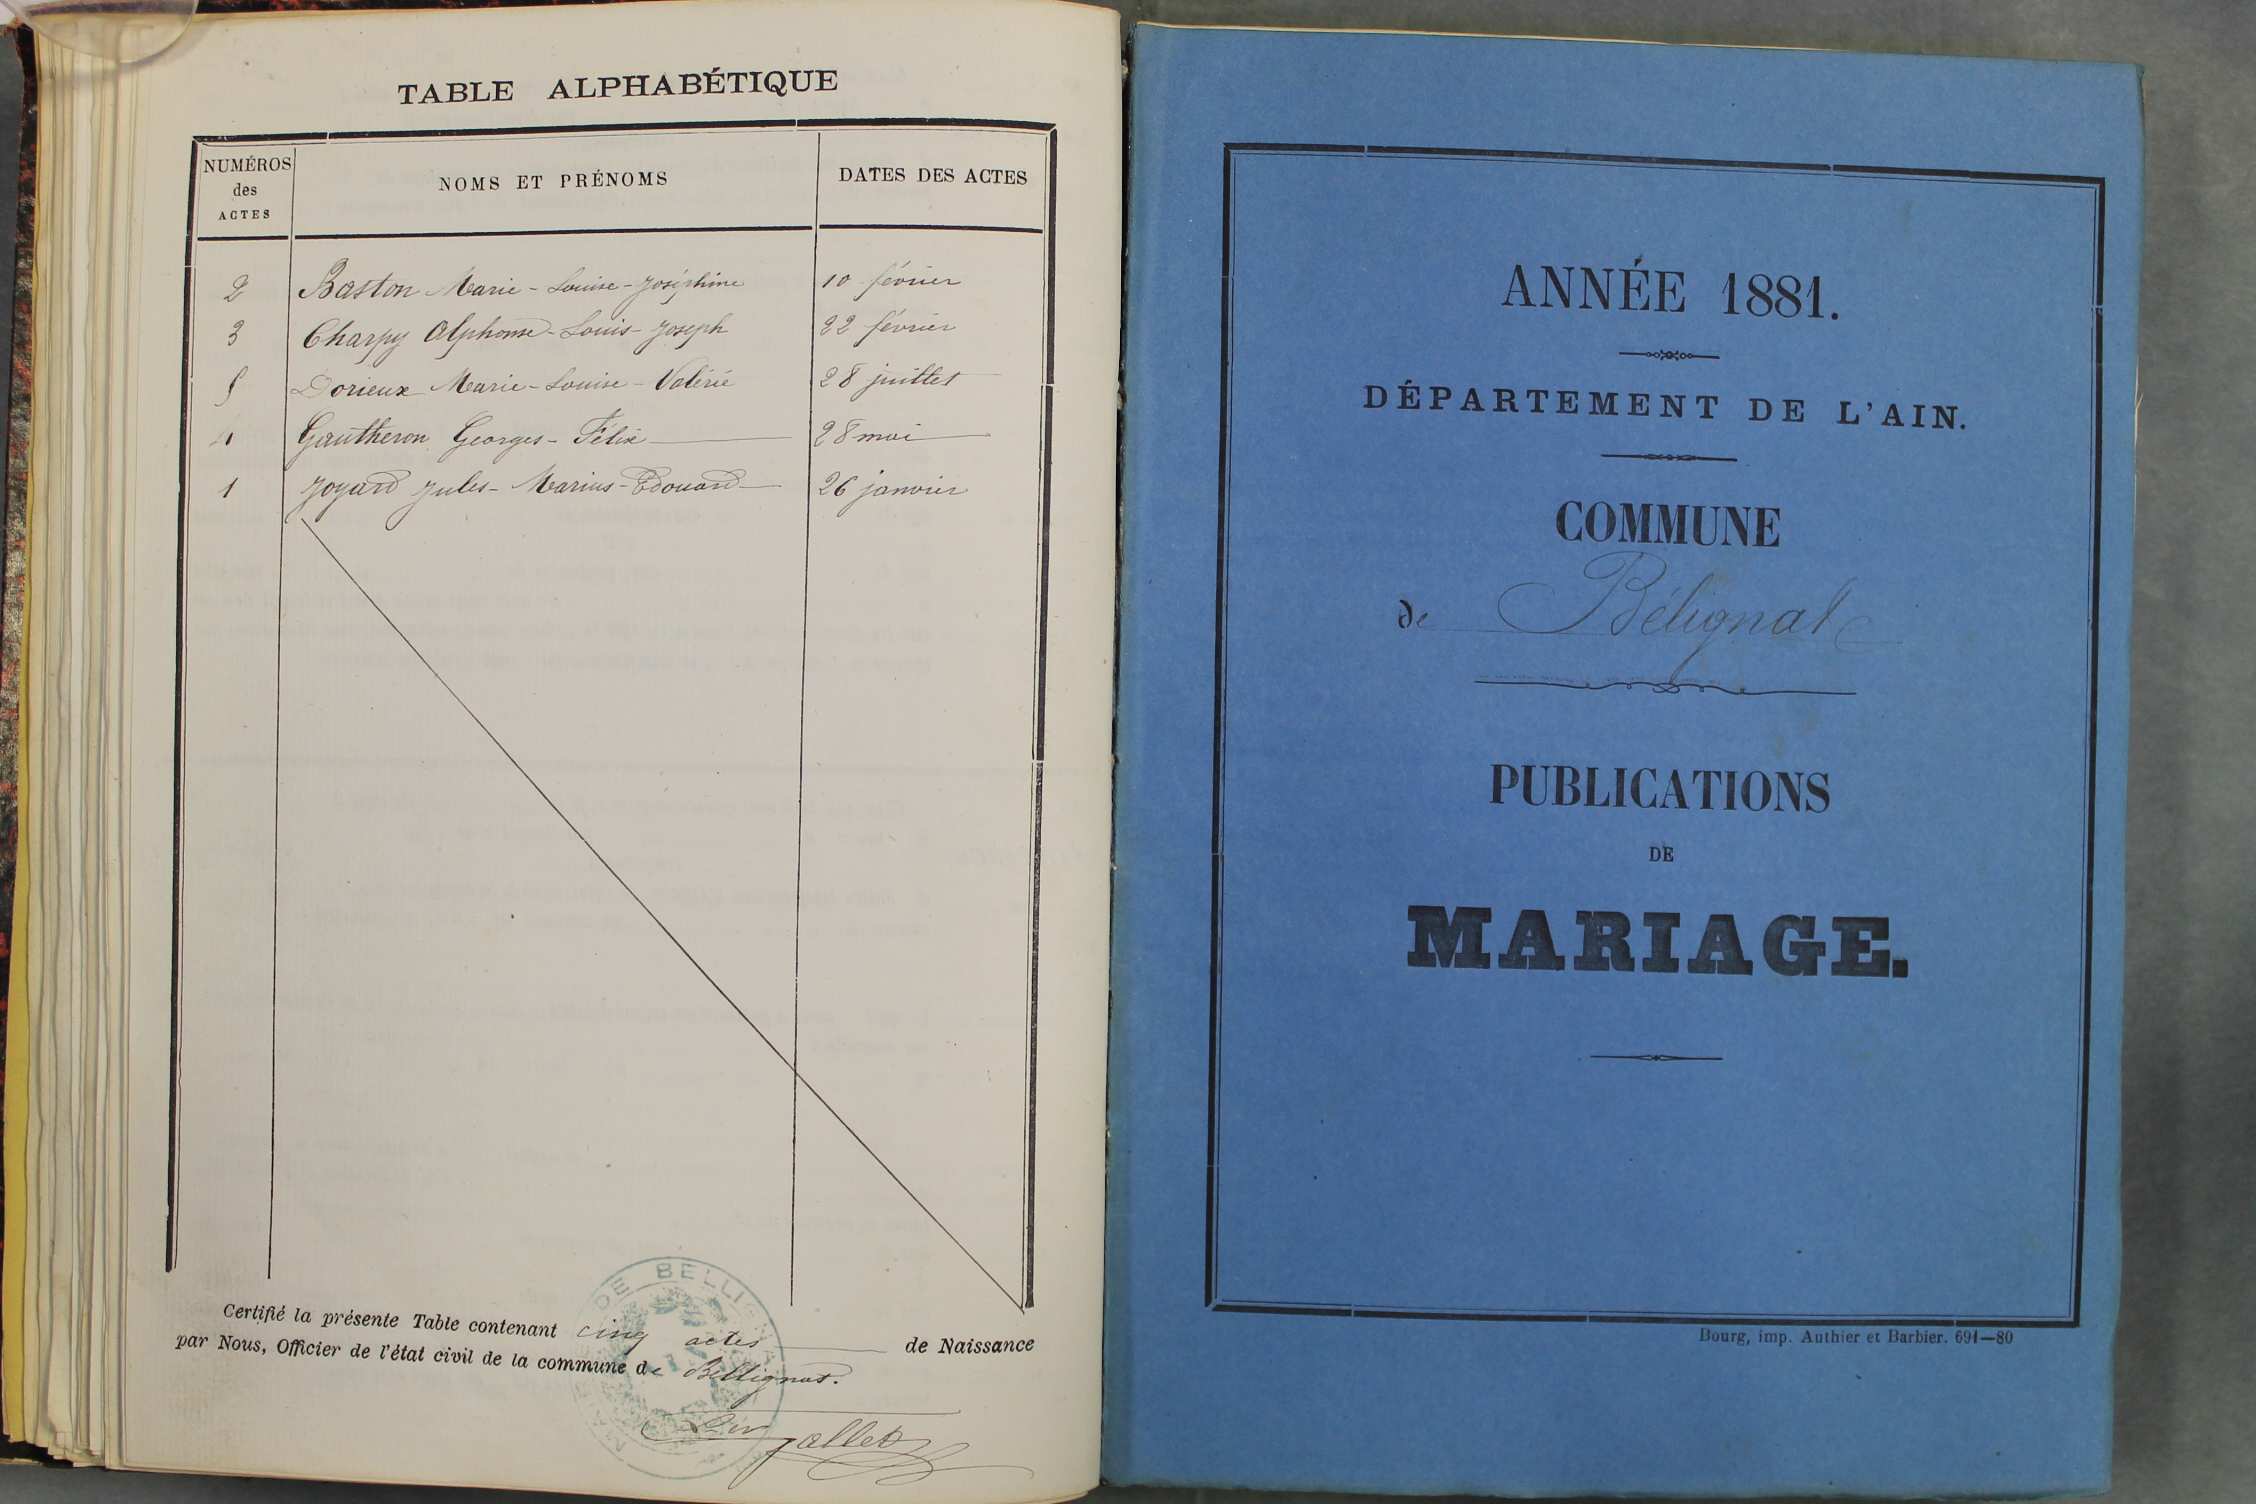 TABLE ALPHABÉTIQUE
NUMÉROS
des
ACTES
NOMS ET PRÉNOMS
DATES DES ACTES
2 Baston Marie-Louise-Joséphine 10 février
3 Charpy Alphonse-Louis-Joseph 22 février
5 Dorieux Marie-Louise-Valérie 28 juillet
4 Gautheron Georges-Félix 28 mai
1 Joyard Jules-Marius-Edouard 26 janvier
Certifié la présente Table contenant cinq actes de Naissance
par Nous, Officier de l'état civil de la commune de Bellignat.
DE BELLIGNAT
ANNÉE 1881.
DÉPARTEMENT DE L'AIN.
COMMUNE
de Bélignat
PUBLICATIONS
DE
MARIAGE.
Bourg, imp. Authier et Barbier. 691—80